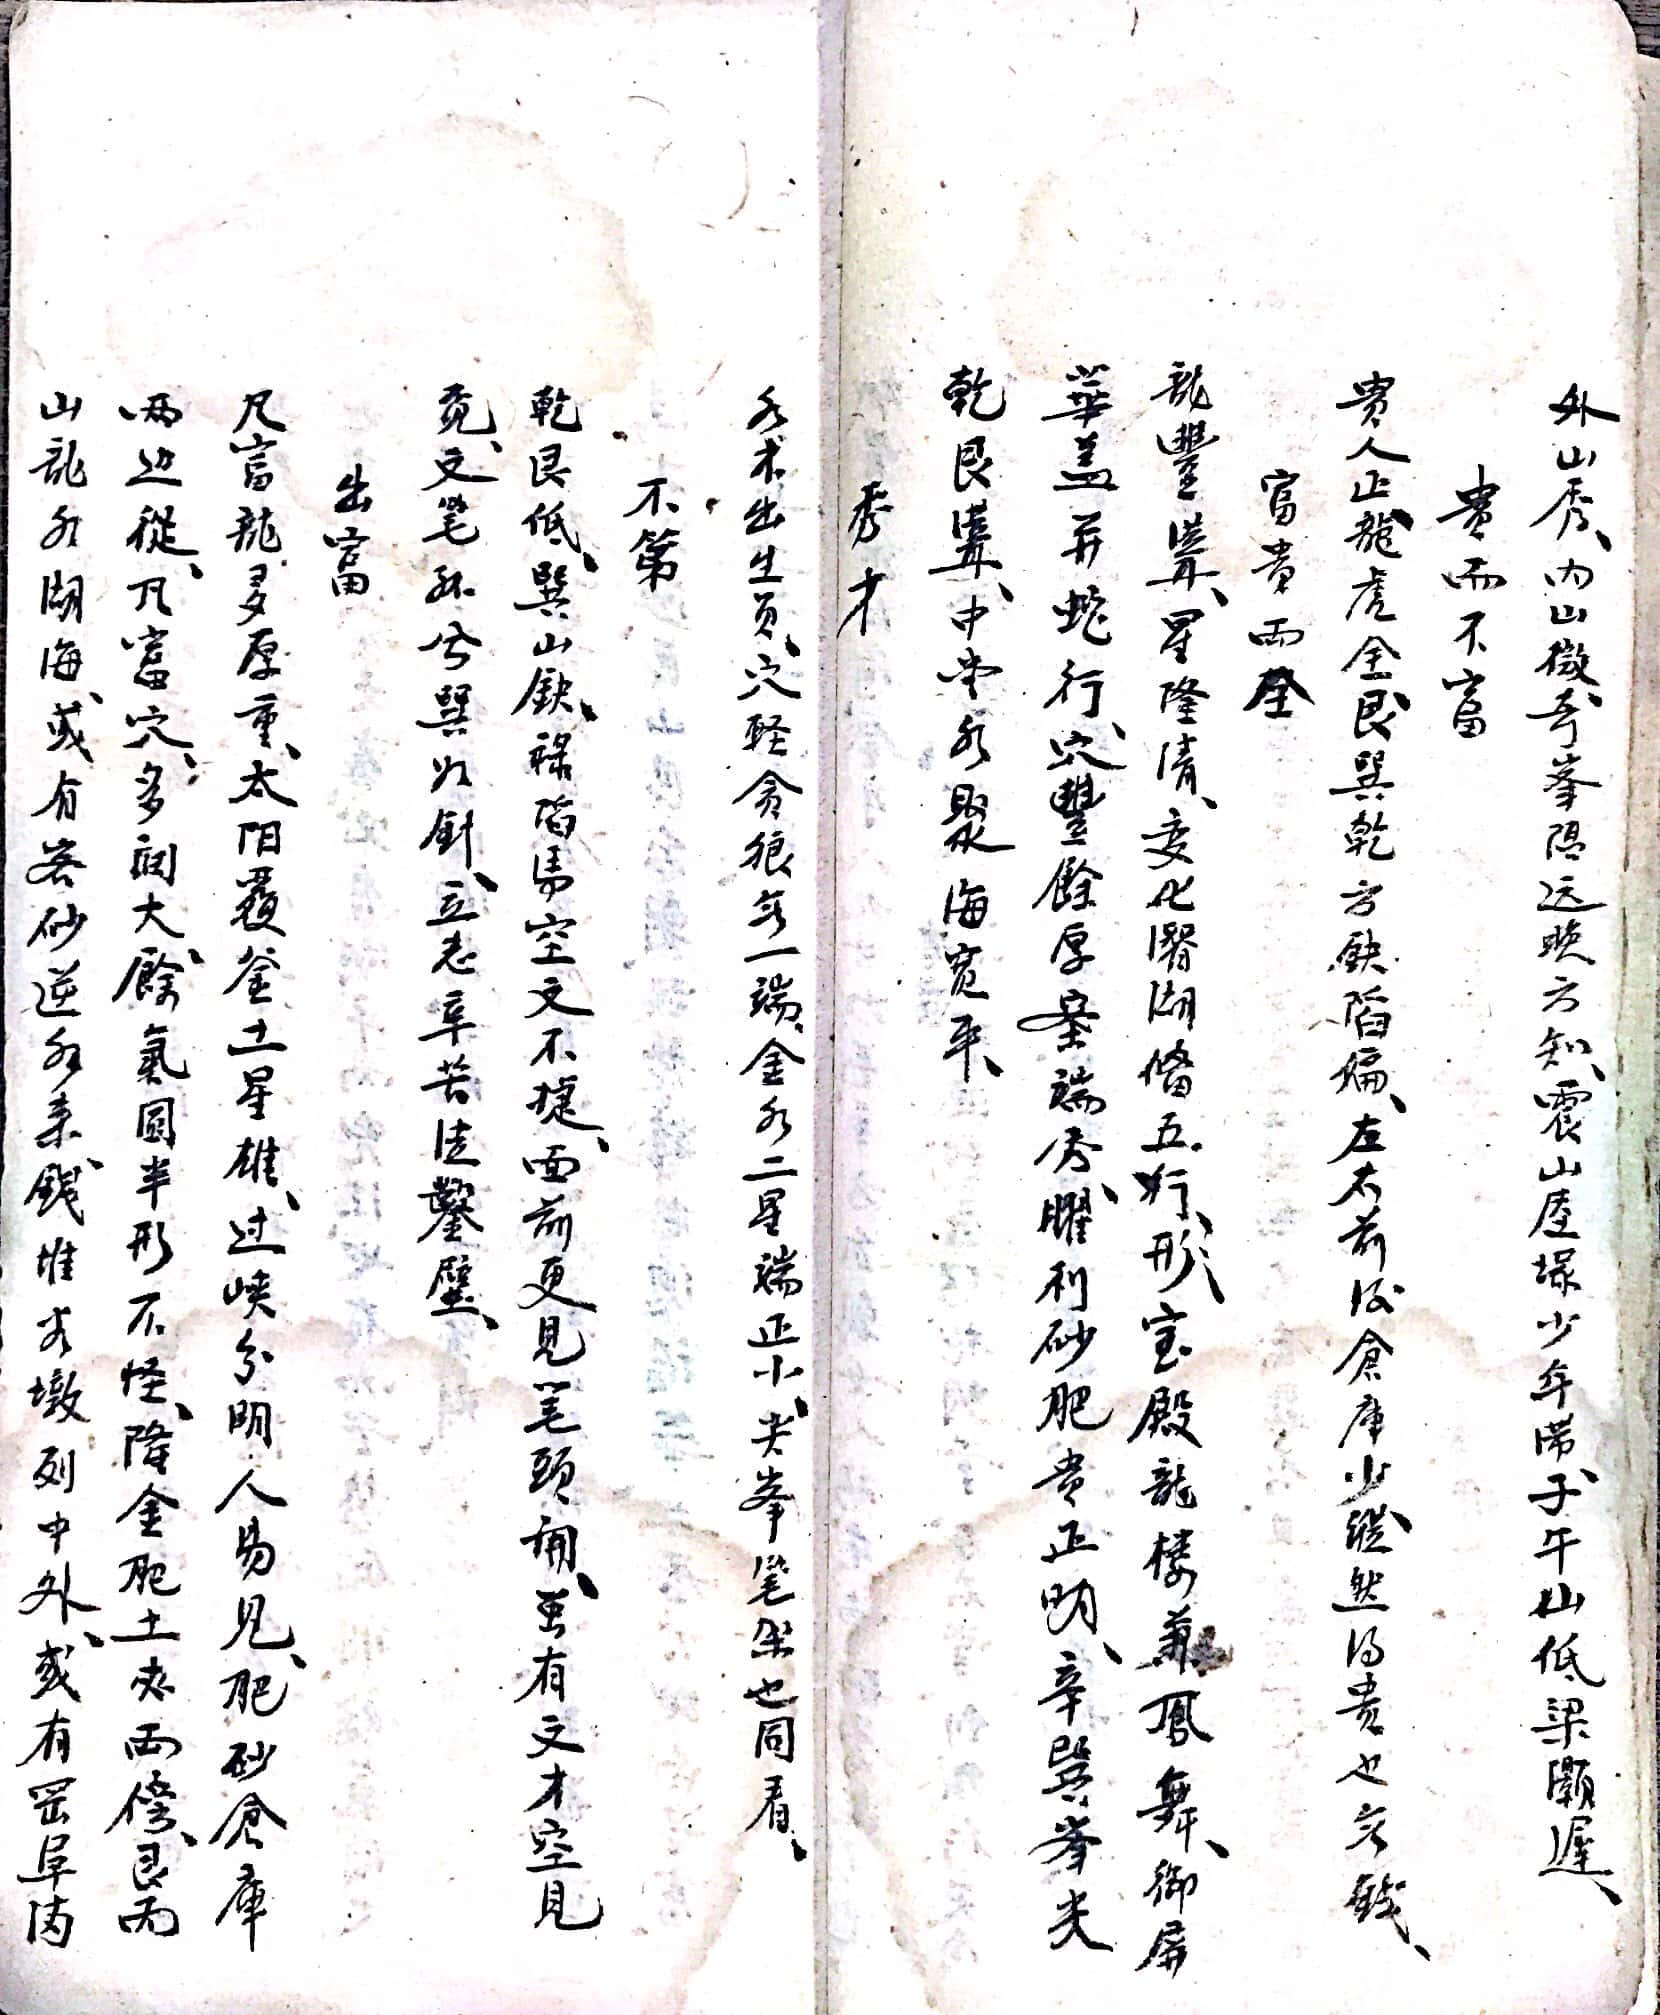 外山秀、内山微、奇峯隐远晚方知、震山低塚少年滞、子午山低梁灏遲、
貴而不富
貴人正、龍虎全、艮巽乾方缺陷偏、左右前后倉庫少、縱然得貴也无錢、
富貴両全
龍豐聳、星隆清、变化潛湖俻五行、形、宝殿龍楼兼鳳舞、御屏
華盖并蛇行、穴豐餘厚案端秀、曜利砂肥貴正明、辛巽峯尖
乾艮聳、中堂水聚海寬平、
秀才
水木出生員、穴軽貪狼无一端、金水二星端正小、尖峯筆架也同看、
不第
乾艮低、巽山缺、祿陷馬空文不捷、面前更見笔頭開、虽有文才空見
竟、文笔砂兮巽如針、立志辛苦徒鑿壁、
出富
凡富龍、多厚重、太阳覆釜土星雄、过峡分明人易見、肥砂倉庫
両边從、凡富穴、多闊大、餘氣圓半形不怪、隆金肥土夾両傍、艮丙
山龍水湖海、或有客砂逆水来、錢堆水墩列中外、或有罡阜内